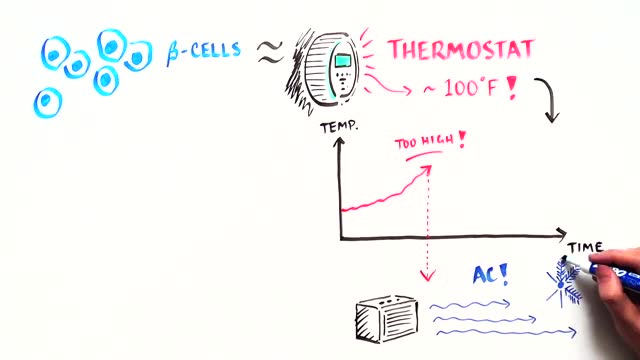 β-CELLS ≈ THERMOSTAT
~ 100°F!
TEMP.
TOO HIGH!
TIME
AC!